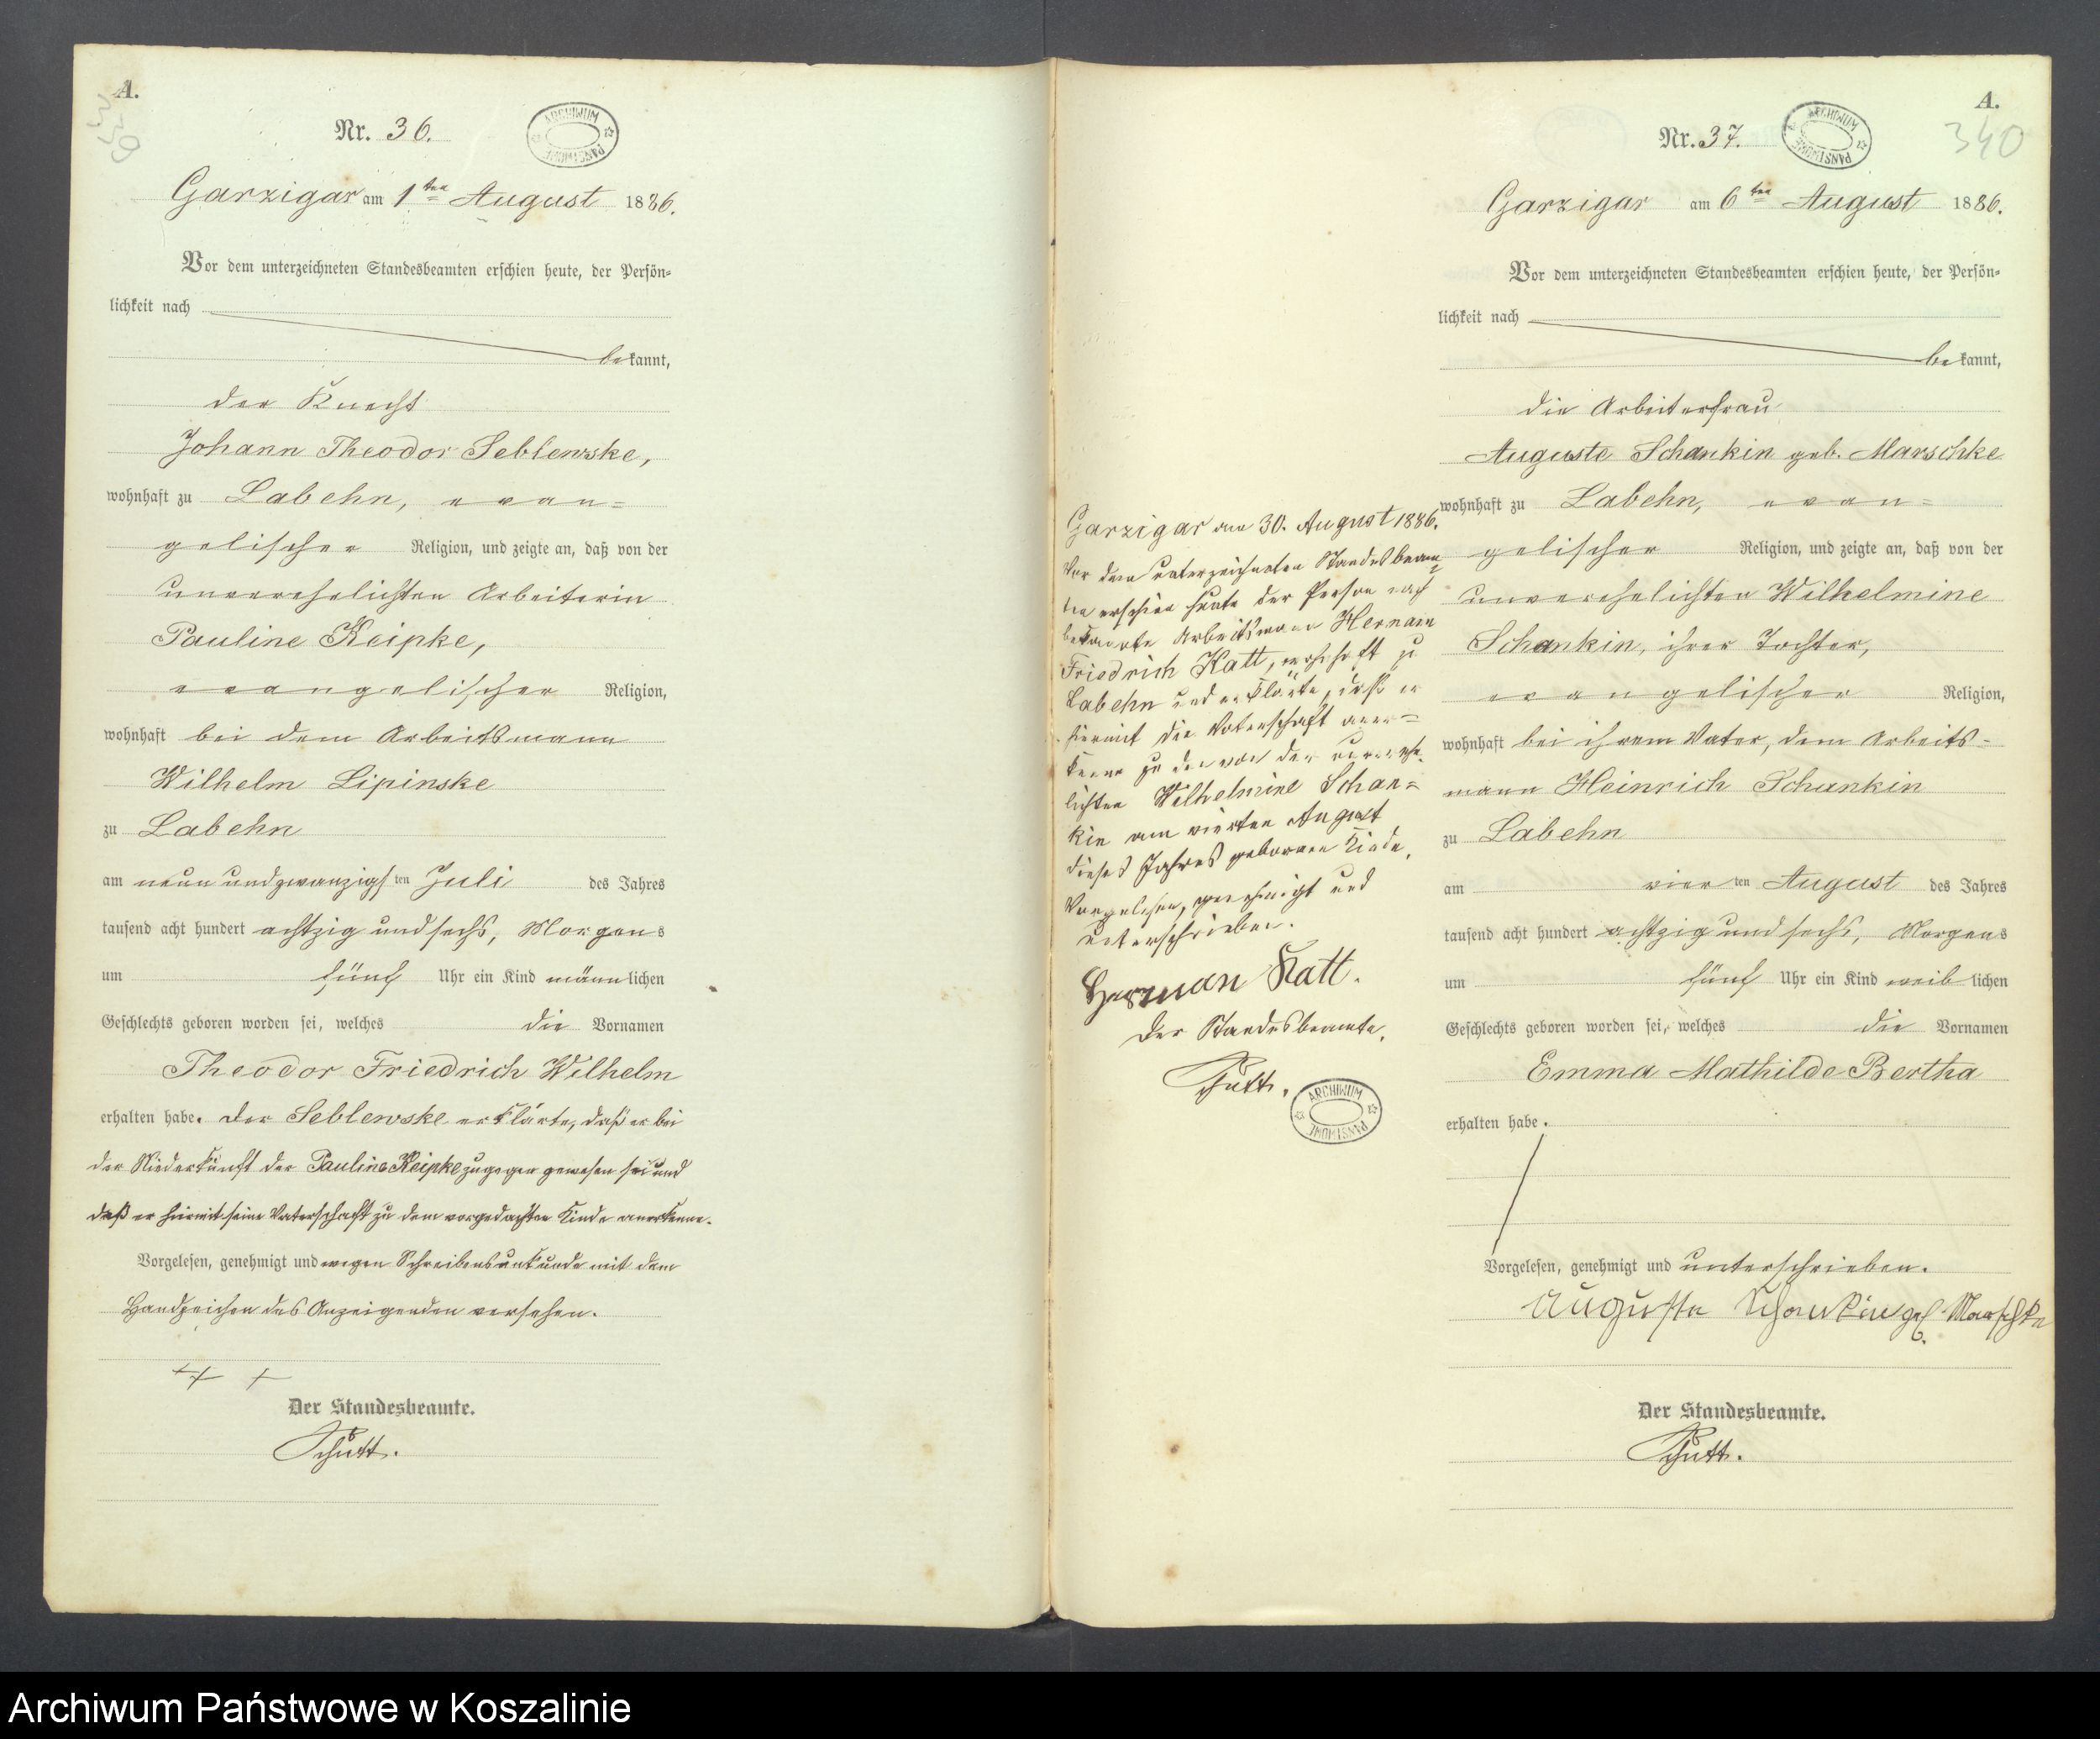 A.
339
Nr. 36.
ARCHIWUM PAŃSTWOWE
Garzigar am 1ten August 1886.
Vor dem unterzeichneten Standesbeamten erschien heute, der Persön=
lichkeit nach
bekannt,
der Knecht
Johann Theodor Seblewske,
wohnhaft zu Labehn, evan=
gelischer Religion, und zeigte an, daß von der
unverehelichten Arbeiterin
Pauline Keipke,
evangelischer Religion,
wohnhaft bei dem Arbeitsmann
Wilhelm Lipinske
zu Labehn
am neunundzwanzigsten Juli des Jahres
tausend acht hundert achtzig und sechs, Morgens
um fünf Uhr ein Kind männlichen
Geschlechts geboren worden sei, welches die Vornamen
Theodor Friedrich Wilhelm
erhalten habe. Der Seblewske erklärte, daß er bei
der Niederkunft der Pauline Keipke zugegen gewesen sei und
daß er hiermit seine Vaterschaft zu dem vorgedachten Kinde anerkenne.
Vorgelesen, genehmigt und wegen Schreibensunkunde mit dem
Handzeichen des Anzeigenden versehen.
+++
Der Standesbeamte.
Schütt.
Garzigar am 30. August 1886.
Vor dem unterzeichneten Standesbeam=
ten erschien heute der Person nach
bekannte Arbeitsmann Hermann
Friedrich Katt, wohnhaft zu
Labehn und erklärte, daß er
hiermit die Vaterschaft aner=
kenne zu dem von der unverehe=
lichten Wilhelmine Schan=
kin am vierten August
dieses Jahres geborenen Kinde.
Vorgelesen, genehmigt und
unterschrieben.
Herman Katt.
Der Standesbeamte.
Schütt.
ARCHIWUM PAŃSTWOWE
A.
340
Nr. 37.
ARCHIWUM PAŃSTWOWE
Garzigar am 6ten August 1886.
Vor dem unterzeichneten Standesbeamten erschien heute, der Persön=
lichkeit nach
bekannt,
die Arbeiterfrau
Auguste Schankin geb. Marschke
wohnhaft zu Labehn, evan=
gelischer Religion, und zeigte an, daß von der
unverehelichten Wilhelmine
Schankin, ihrer Tochter,
evangelischer Religion,
wohnhaft bei ihrem Vater, dem Arbeits=
mann Heinrich Schankin
zu Labehn
am vierten August des Jahres
tausend acht hundert achtzig und sechs, Morgens
um fünf Uhr ein Kind weiblichen
Geschlechts geboren worden sei, welches die Vornamen
Emma Mathilde Bertha
erhalten habe.
Vorgelesen, genehmigt und unterschrieben.
Auguste Schankin geb. Marschke
Der Standesbeamte.
Schütt.
Archiwum Państwowe w Koszalinie